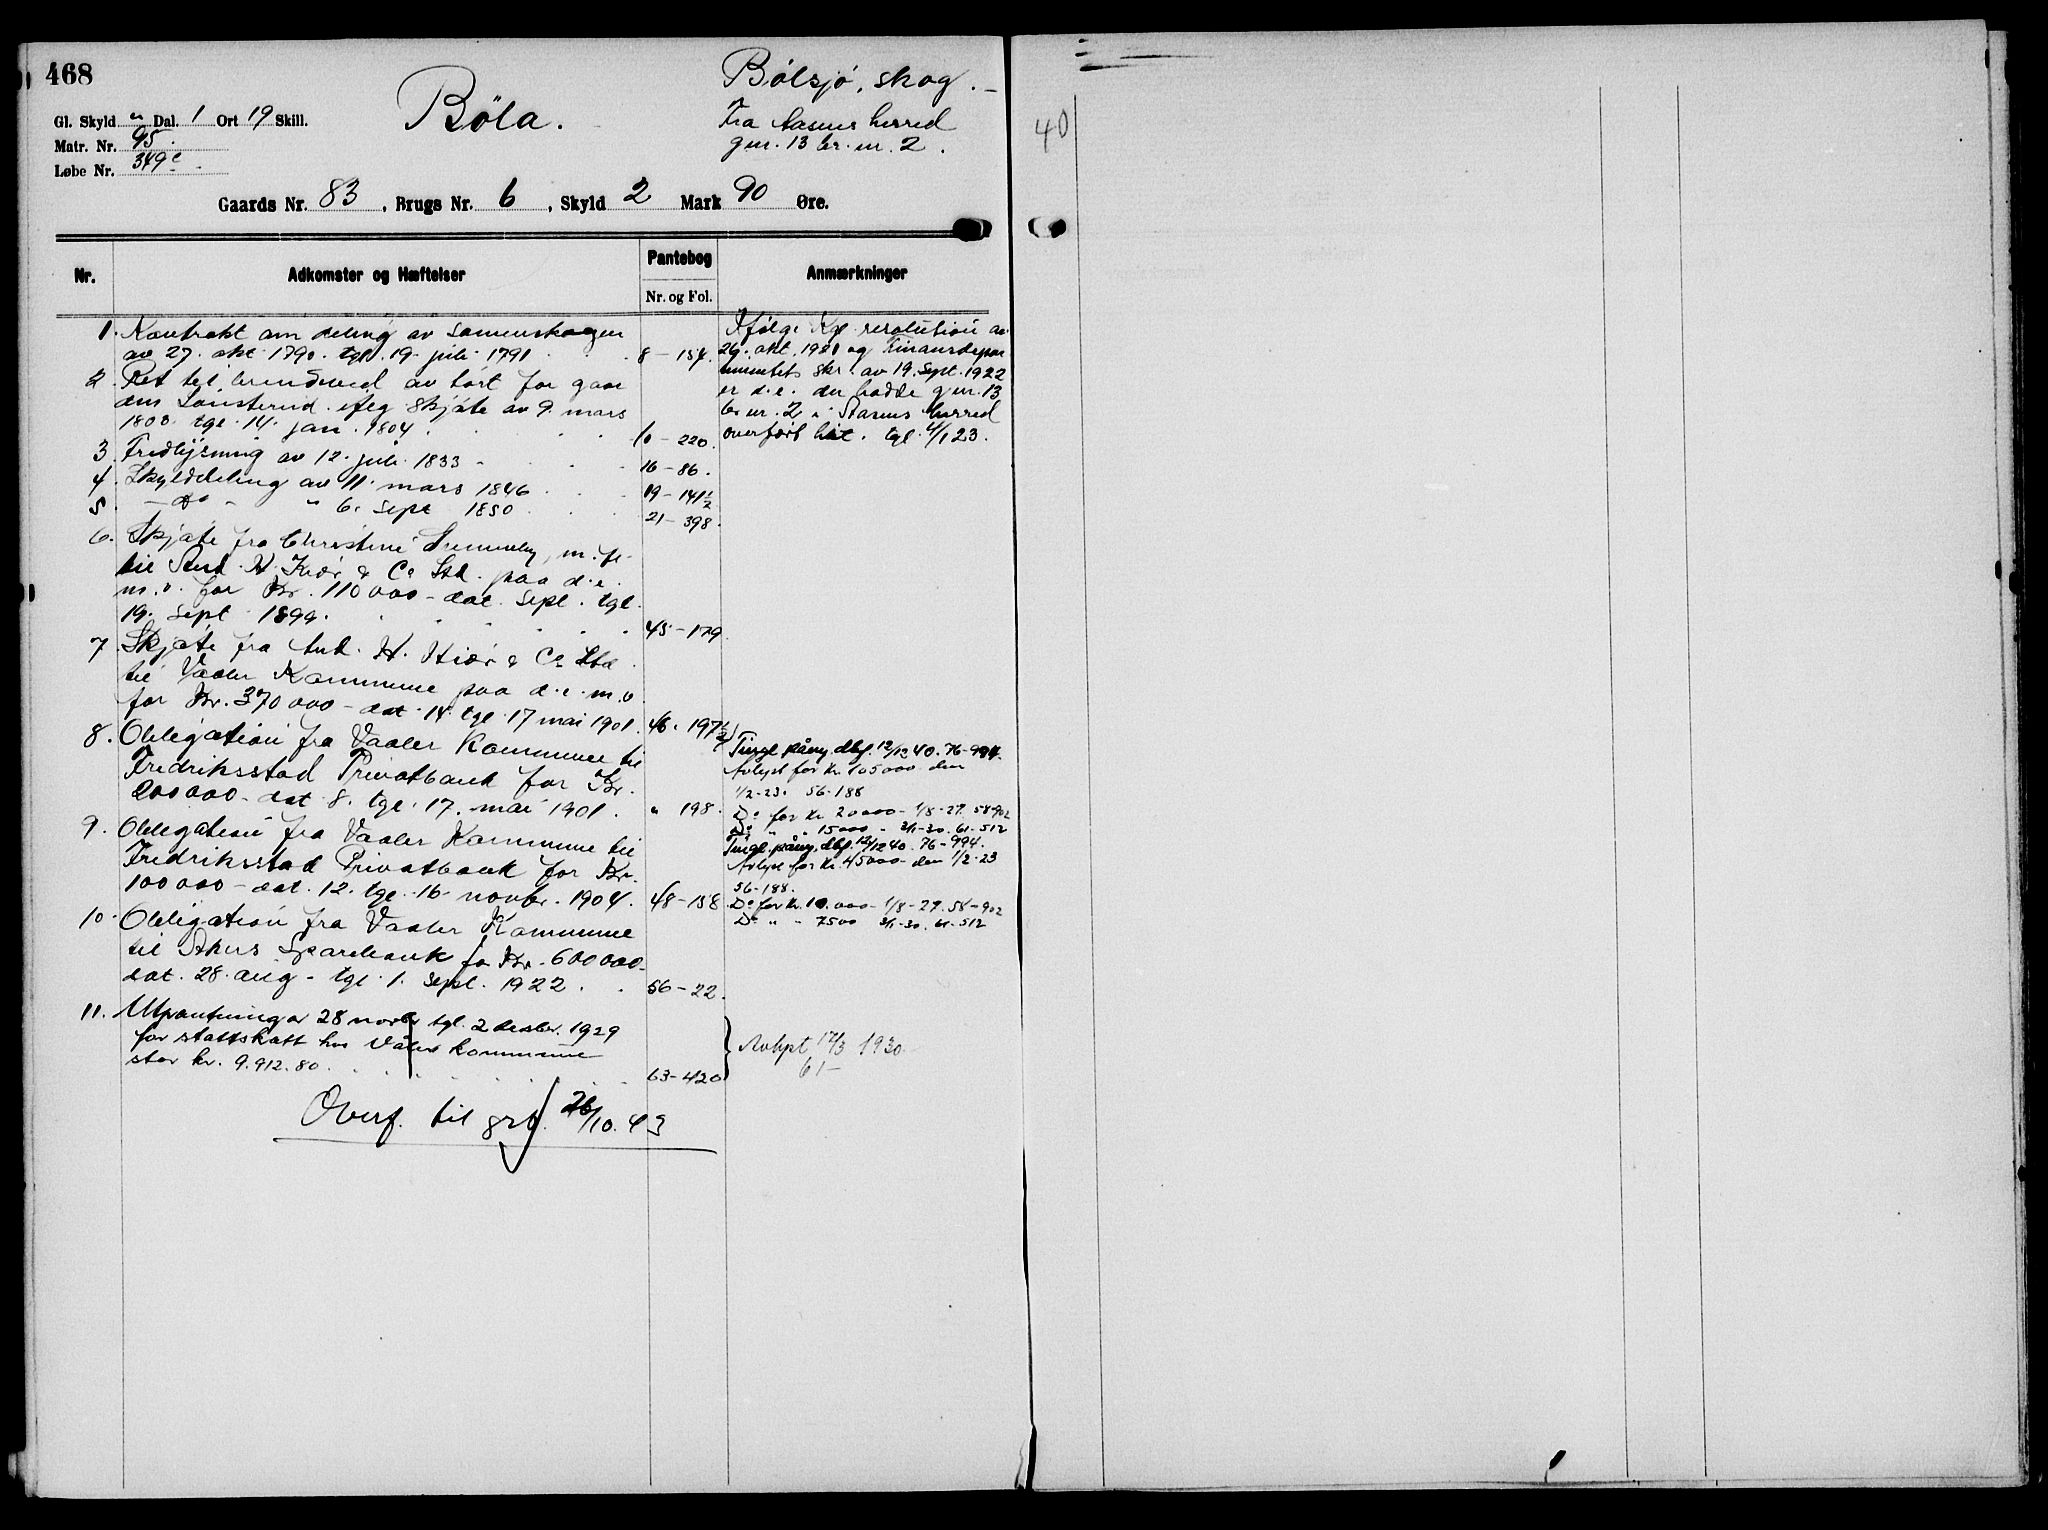 468
Gl. Skyld " Dal. 1 Ort 19 Skill.
Matr. Nr. 95.
Løbe Nr. 349c
Böla.
Bölsjö, skog.
Fra Aasnes herred
gnr. 13 br. nr. 2.
Gaards Nr. 83, Brugs Nr. 6, Skyld 2 Mark 90 Øre.
Nr.
Adkomster og Hæftelser
Pantebog
Nr. og Fol.
Anmærkninger
1. Kontrakt om deling av sameieskogen
av 27. okt. 1790. tgl. 19. juli 1791 8 - 154.
2. Ret til brændeved av tört for gaar
den enflg. skjöte av 9. mars
1803. tgl. 14. jan. 1804 10 - 220.
3. Fredlysning av 12. juli 1833 16 - 86.
4. Skylddeling av 11. mars 1846 19 - 141½
5. - do - " 6. sept 1850 21 - 398.
6. Skjöte fra Christine m. fl.
til And. H. Kiær & Co Ltd. paa d.e.
m.v. for Kr. 110000 - dat. sept. tgl.
19. sept 1899. 45 - 179.
7. Skjöte fra And. H. Kiær & Co Ltd
til Vaaler Kommune paa d.e. m.v
for Kr. 370000 - dat. 14. tgl. 17 mai 1901. 46. 197½
8. Obligation fra Vaaler Kommune til
Fredriksstad Privatbank for Kr.
200000 - dat 8. tgl. 17. mai 1901. " 198.
9. Obligation fra Vaaler Kommune til
Fredriksstad Privatbank for Kr.
100000 - dat. 12. tgl. 16. novbr. 1904. 48 - 158
10. Obligation fra Vaaler Kommune
til Akers Sparebank for Kr. 600000 -
dat. 28. aug - tgl. 1. sept. 1922. 56 - 22.
11. Utpantning av 28 novbr tgl. 2 desbr. 1929
for stattskatt hos Våler kommune
stor kr. 9.912.80. 63 - 420
Overf. til grb. 26/10. 43
Ifølge Kgl. resolution av
26. okt. 1921 og Finansdepar
tementets skr. av 19. sept. 1922
er d.e. der hadde gnr. 13
br. nr. 2 i Aasnes herred
overfört hit. tgl. 4/1 23.
Tingl. påny. dbf. 12/12 40. 76-994.
Avlyst for kr. 105000 den
1/2-23. 56-188
Do for kr 20000 - 1/8-27. 58-902
Do " " 15000 - 3/1-30. 61-512
Tingl. påny. dbf. 12/12 40. 76-994.
Avlyst for kr. 45000 - den 1/2-23
56-188.
Do for kr. 10.000 - 1/8-27. 58-902
Do " " 7500 3/1-30. 61-512
Avlyst 12/3 1930.
61 -
40